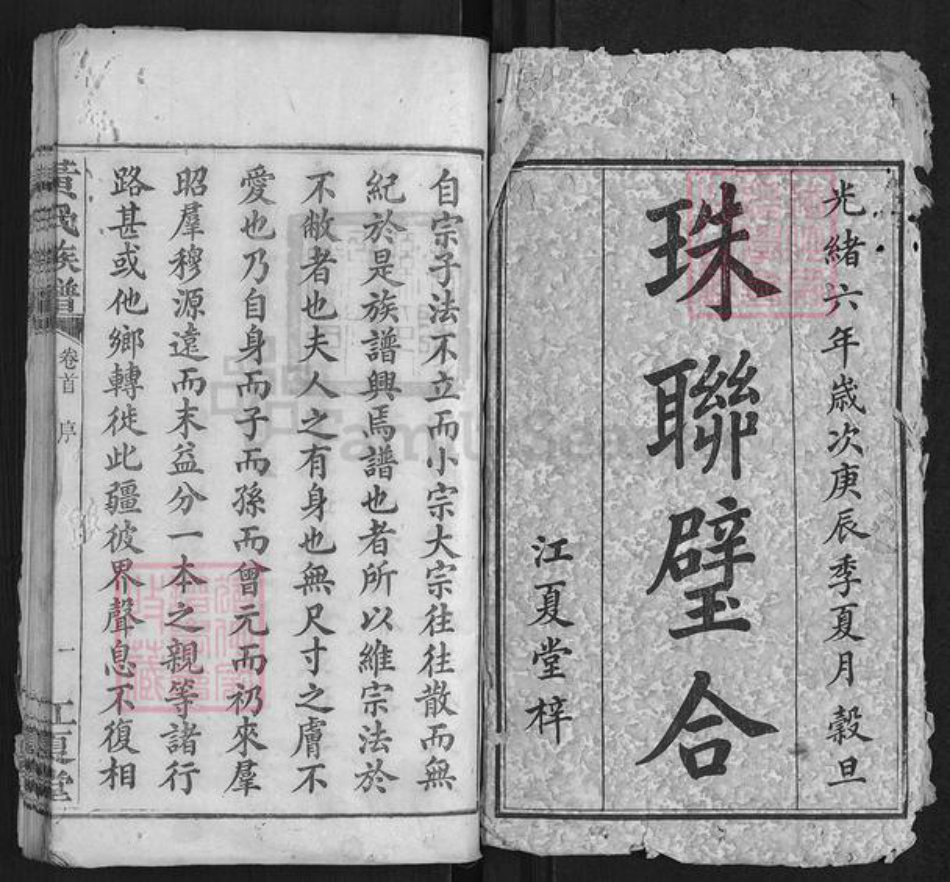 光緒六年歲次庚辰季夏月穀旦
珠聯璧合
江夏堂梓
自宗子法不立而小宗大宗往往散而無
紀於是族譜興焉譜也者所以維宗法於
不敝者也夫人之有身也無尺寸之膚不
愛也乃自身而子而孫而曾元而礽來羣
昭羣穆源遠而末益分一本之親等諸行
路甚或他鄉轉徙此疆彼界聲息不復相
黃氏族譜
卷首
序
一
江夏堂
FamilySearch